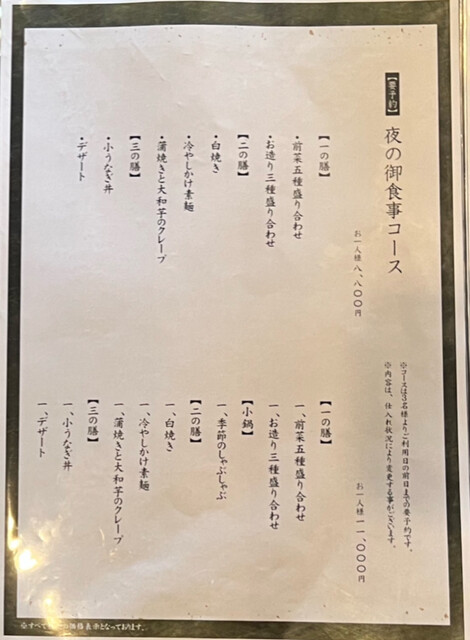 【要予約】夜の御食事コース
お一人様 八、八〇〇円
【一の膳】
・前菜五種盛り合わせ
・お造り三種盛り合わせ
【二の膳】
・白焼き
・冷やしかけ素麺
・蒲焼きと大和芋のクレープ
【三の膳】
・小うなぎ丼
・デザート
※コースは3名様よりご利用日の前日までの要予約です。
※内容は、仕入れ状況により変更する事がございます。
お一人様 一一、〇〇〇円
【一の膳】
一、前菜五種盛り合わせ
一、お造り三種盛り合わせ
【小鍋】
一、季節のしゃぶしゃぶ
【二の膳】
一、白焼き
一、冷やしかけ素麺
一、蒲焼きと大和芋のクレープ
【三の膳】
一、小うなぎ丼
一、デザート
※すべて 価格表示となっております。